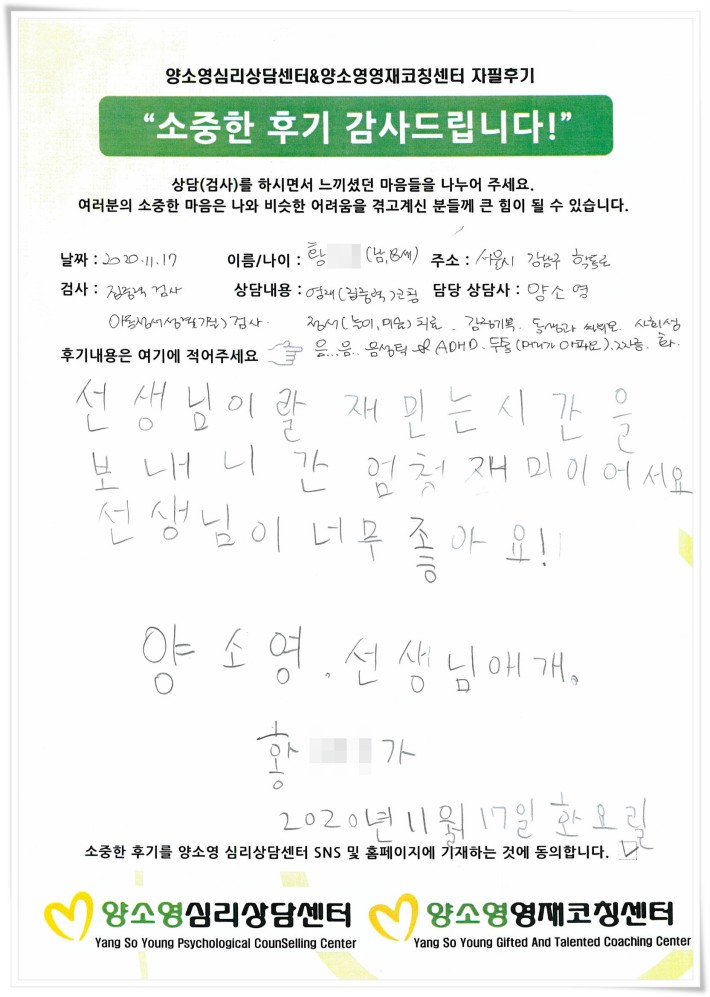 양소영심리상담센터&양소영영재코칭센터 자필후기
“소중한 후기 감사드립니다!”
상담(검사)를 하시면서 느끼셨던 마음들을 나누어 주세요.
여러분의 소중한 마음은 나와 비슷한 어려움을 겪고계신 분들께 큰 힘이 될 수 있습니다.
날짜 : 2020.11.17 이름/나이 : 황 (남,8세) 주소 : 서울시 강남구 학동로
검사 : 집중력 검사 상담내용 : 영재(집중력)코칭 담당 상담사 : 양소영
검사. 정서(놀이,미술)치료. 감정기복. 동생과 싸워요. 사회성
후기내용은 여기에 적어주세요 음.. 음.. 음성틱 ADHD. 두통(머리가 아파요). 짜증. 화.
선생님이랄 재민는시간을
보내니간 엄청재미이어서요
선생님이너무좋아요!
양소영. 선생님애개.
황 가
2020년11월17일화요릴
소중한 후기를 양소영 심리상담센터 SNS 및 홈페이지에 기재하는 것에 동의합니다.
양소영심리상담센터 양소영영재코칭센터
Yang So Young Psychological CounSelling Center Yang So Young Gifted And Talented Coaching Center